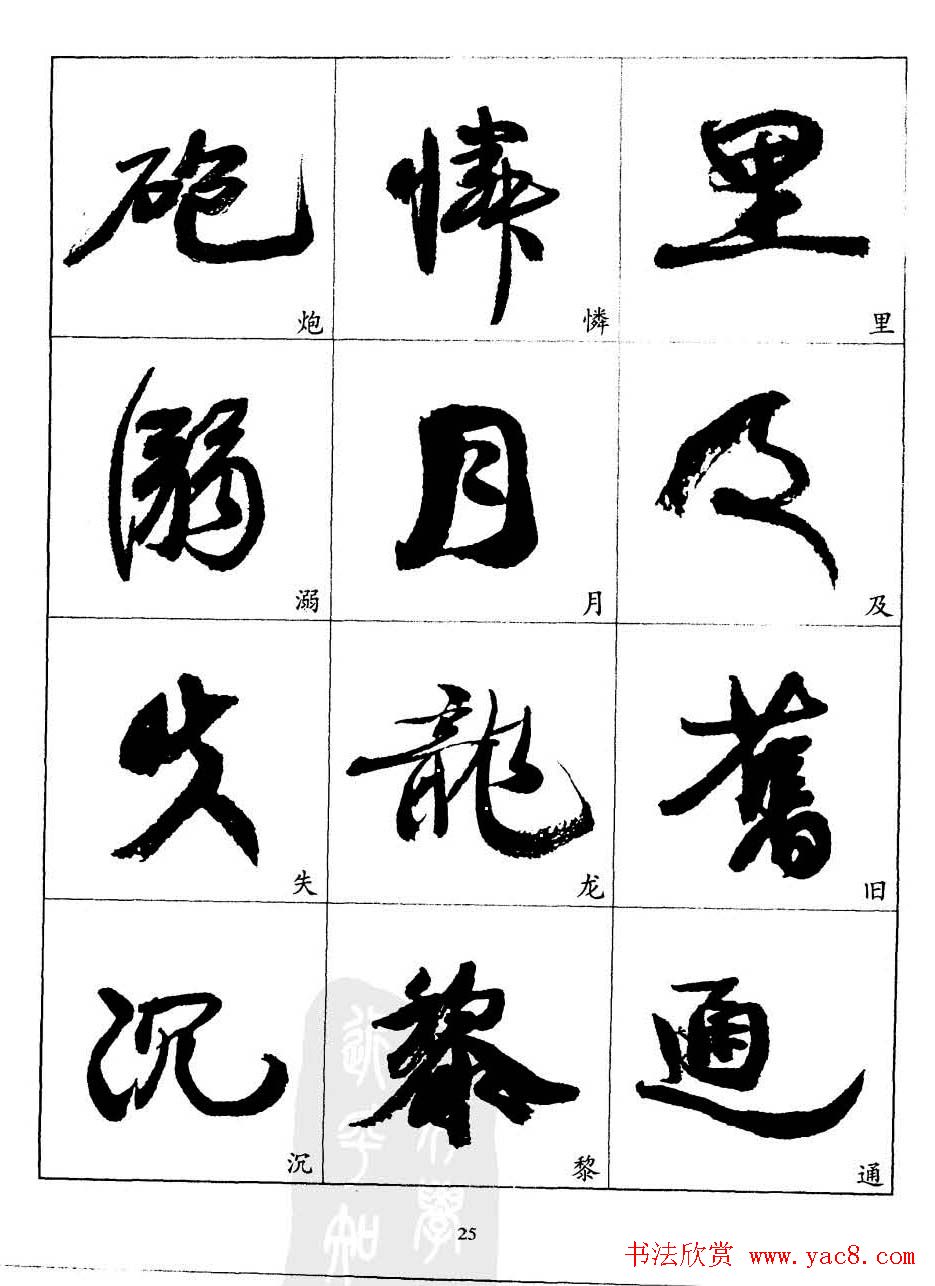 砲 憐 里
炮 憐 里
溺 月 及
溺 月 及
失 龍 舊
失 龙 旧
沉 黎 通
沉 黎 通
25
书法欣赏 www.yac8.com